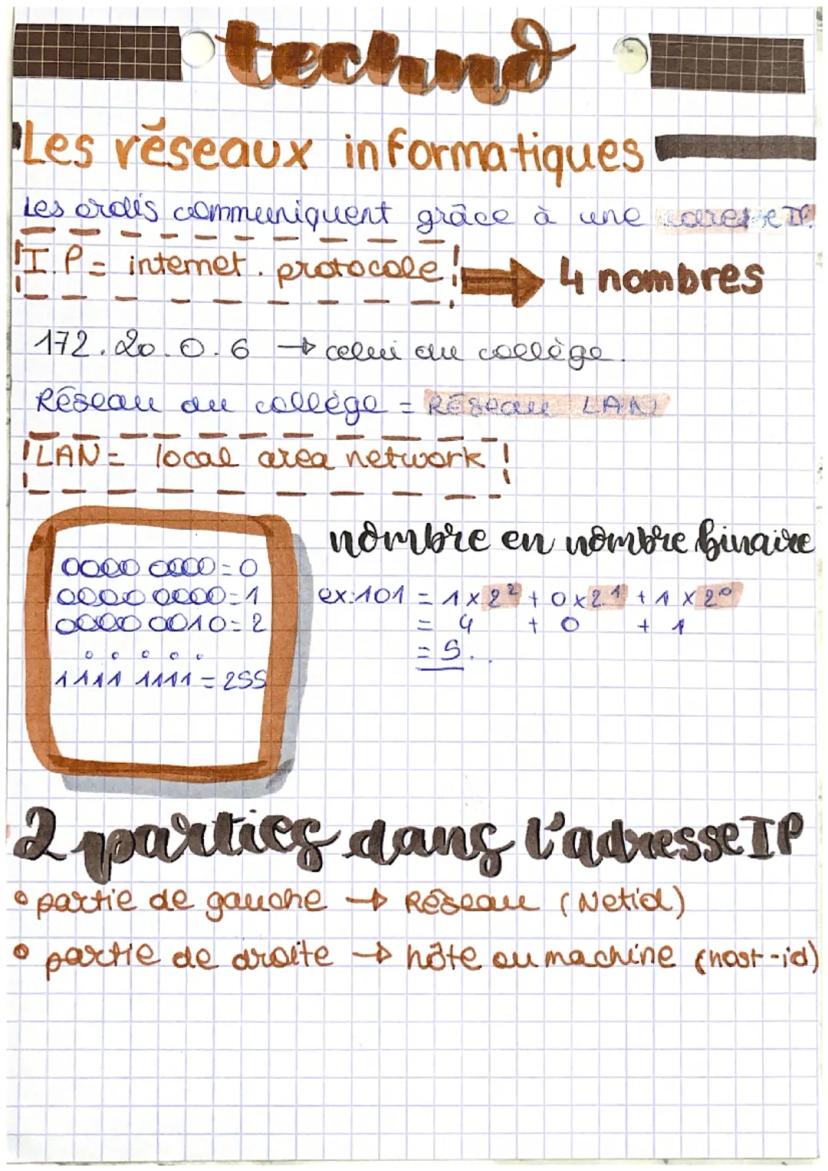 techno
Les réseaux informatiques
Les ordis communiquent grâce à une adresse IP.
I.P = internet. protocole → 4 nombres
172.20.0.6 → celui du collège.
Réseau du collège = Réseau LAN
LAN = local area network
nombre en nombre binaire
0000 0000 = 0
0000 0000 = 1
0000 0010 = 2
. . . . .
1111 1111 = 255
ex: 101 = 1 x 2² + 0 x 2¹ + 1 x 2⁰
= 4 + 0 + 1
= 5.
2 parties dans l'adresse IP
• partie de gauche → Réseau (Netid)
• partie de droite → hôte ou machine (host-id)